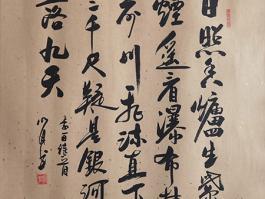 日照香爐生紫
煙遥看瀑布挂
前川飛流直下
三千尺疑是銀河
落九天
李白詩一首